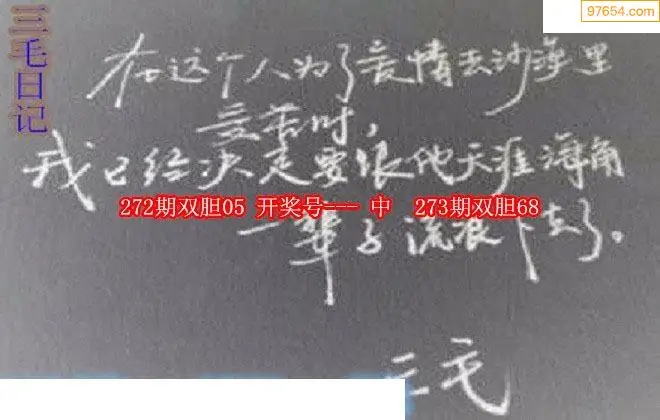 97654.com
三毛日记
在这个人为了爱情去沙漠里
受苦时,
我已经决定要跟他天涯海角
272期双胆05 开奖号--- 中 273期双胆68
一辈子流浪下去了。
三毛